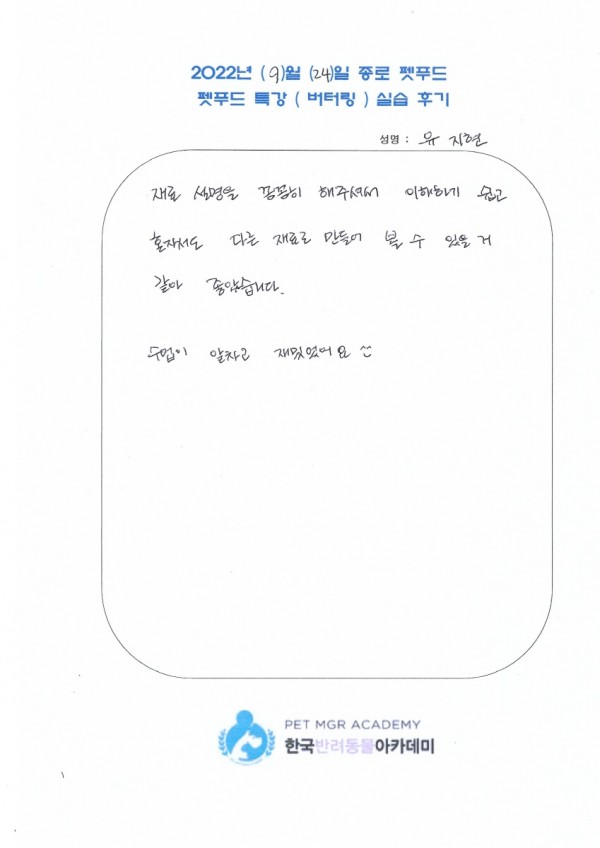 2022년 (9)월 (24)일 종로 펫푸드
펫푸드 특강 ( 버터링 ) 실습 후기
성명 : 유 지현
재료 설명을 꼼꼼히 해주셔서 이해하기 쉽고
혼자서도 다른 재료로 만들어 볼 수 있을 거
같아 좋았습니다.
수업이 알차고 재밌었어요
PET MGR ACADEMY
한국반려동물아카데미